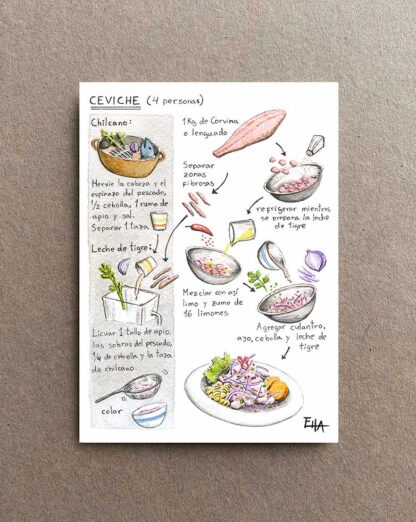 CEVICHE (4 personas)
Chilcano:
Hervir la cabeza y el
espinazo del pescado,
1/2 cebolla, 1 rama de
apio y sal.
Separar 1 taza
Leche de tigre:
Licuar 1 tallo de apio,
las sobras del pescado,
1/4 de cebolla y la taza
de chilcano.
colar
1 Kg de Corvina
o lenguado
Separar
zonas
fibrosas
refrigerar mientras
se prepara la leche
de tigre
Mezclar con ají
limo y zumo de
16 limones
Agregar culantro,
ajo, cebolla y leche de
tigre
EHA